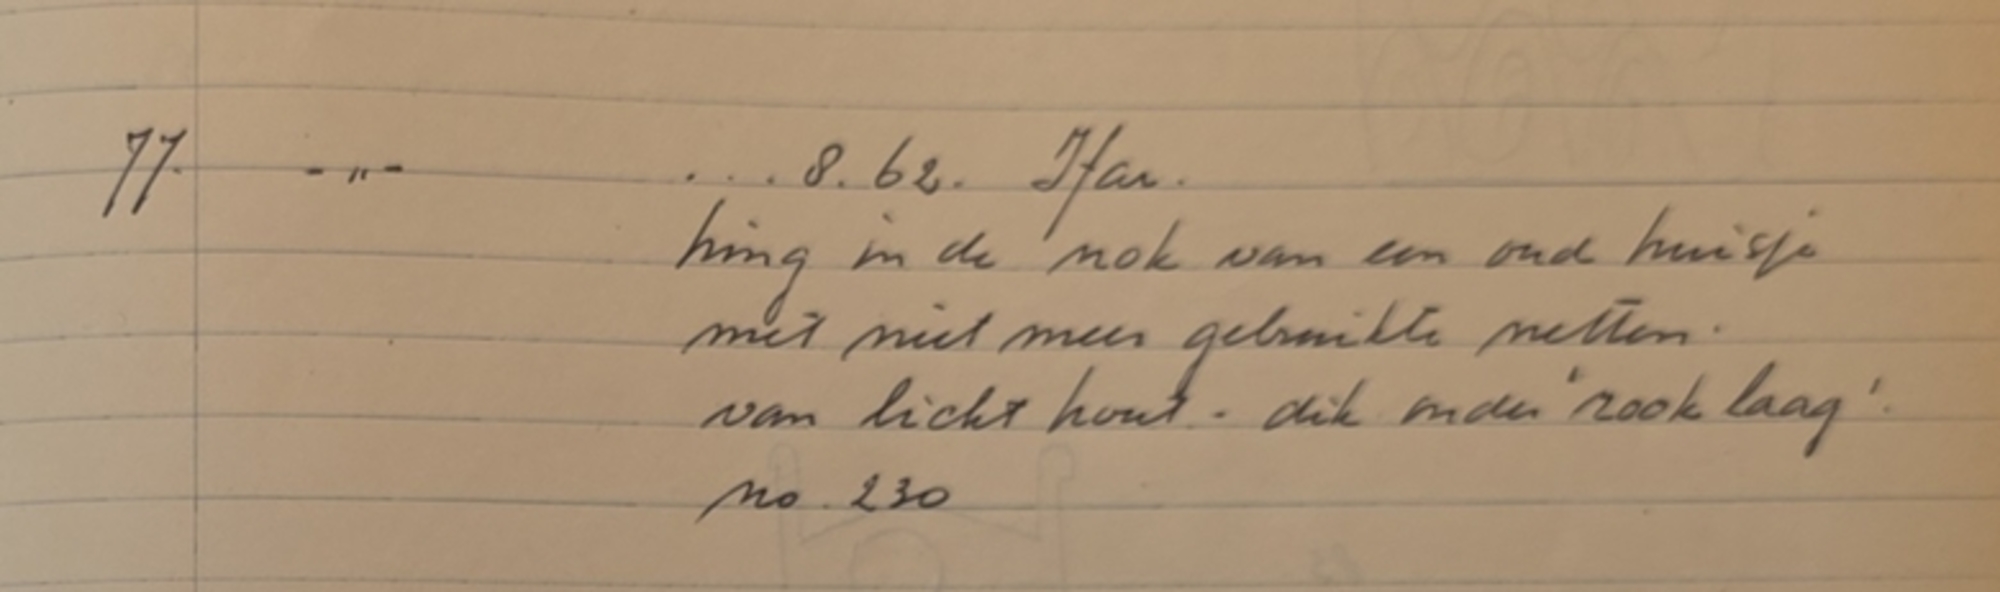 77. - " - . . . 8. 62. Ifar.
hing in de nok van een oud huisje
met niet meer gebruikte netten.
van licht hout - dik onder 'rook laag'.
no. 230